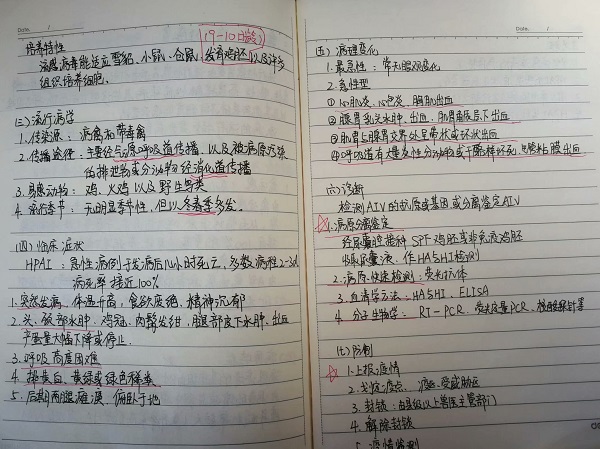 Date.
培养特性
(9-10日龄)
流感病毒能适应雪貂、小鼠、仓鼠、发育鸡胚以及许多
组织培养细胞。
(三)流行病学
1.传染源：病禽和带毒禽
2.传播途径：主要经与呼吸道传播,以及被病原污染
的排泄物或分泌物经消化道传播
3.易感动物：鸡、火鸡以及野生鸟类
4.流行季节：无明显季节性,但以冬春季多发。
(四)临床症状
HPAI：急性病例于发病后几小时死亡,多数病程2-3d
病死率接近100%
1.突然发病、体温升高,食欲废绝,精神沉郁
2.头、颈部水肿,鸡冠、肉髯发绀,腿部皮下水肿、出血
产蛋量大幅下降或停止.
3.呼吸高度困难
4.排黄白、黄绿或绿色稀粪
5.后期两腿瘫痪,俯卧于地
Date.
(五)病理变化
1.最急性：常无眼观变化
2.急性型
①心肌炎、心包炎、胸肌出血
②腺胃乳头水肿、出血、肌胃角质层下出血
③肌胃与腺胃交界处呈带状或环状出血
④呼吸道有大量炎性分泌物或干酪样坏死,气管粘膜出血
(六)诊断
检测AIV的抗原或基因或分离鉴定AIV
1.病原分离鉴定
经尿囊腔接种SPF鸡胚或非免疫鸡胚
收尿囊液、作HA与HI检测
2.病原快速检测：荧光抗体
3.血清学方法：HA与HI、ELISA
4.分子生物学：RT-PCR、荧光定量PCR、核酸探针等
(七)防制
1.上报疫情
2.划疫点、疫区、受威胁区
3.封锁：由县级以上兽医主管部门
4.解除封锁
5.疫情监测